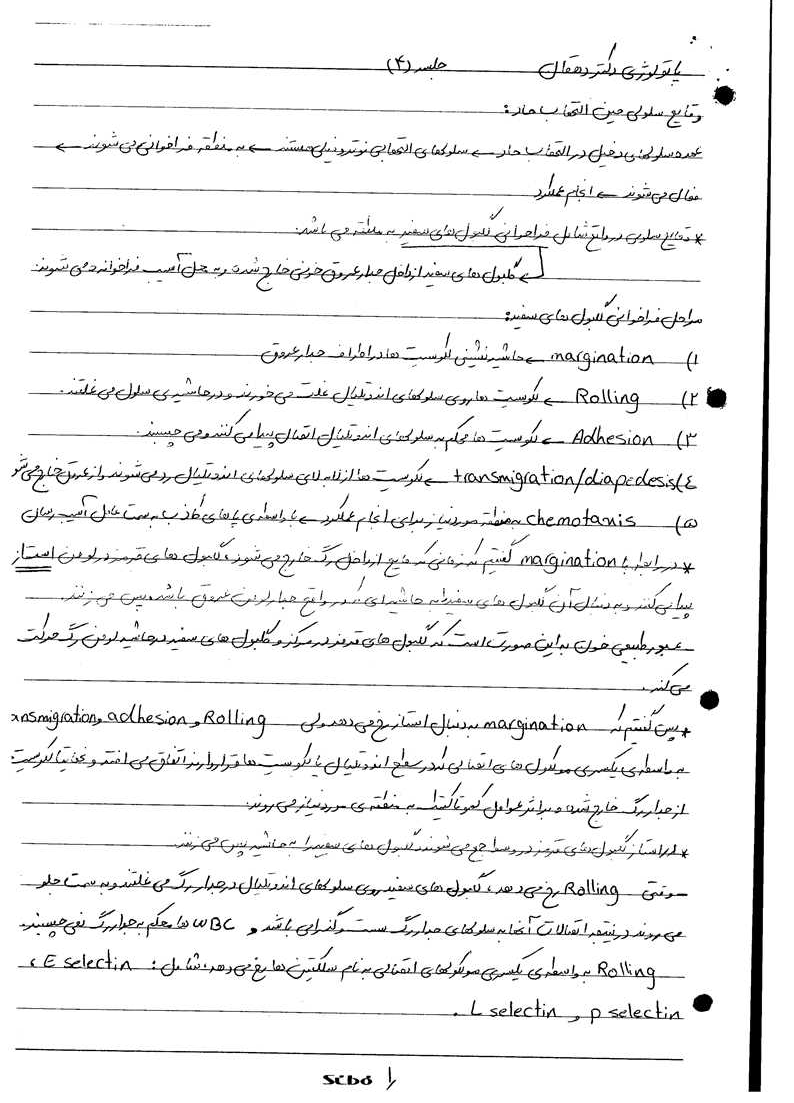 پاتولوژی دکتر دهقان جلسه (۴)
وقایع سلولی حین التهاب حاد:
عمده سلولهای دخیل در التهاب حاد ← سلولهای التهابی نوتروفیلی هستند ← به منطقه فراخوانی می شوند ←
فعال می شوند ← انجام عملکرد
* وقایع سلولی در واقع شامل فراخوانی گلبول های سفید به منطقه می باشد.
← گلبول های سفید از داخل جدار عروق خونی خارج شده و به محل آسیب فراخوانده می شوند.
مراحل فراخوانی گلبول های سفید:
۱) margination ← حاشیه نشینی لکوسیت ها در اطراف جدار عروق
۲) Rolling ← لکوسیت ها روی سلولهای اندوتلیال غلت می خورند و در حاشیه ی سلول می غلتند.
۳) Adhesion ← لکوسیت ها محکم به سلولهای اندوتلیال اتصال پیدا می کنند و می چسبند.
٤) transmigration/diapedesis ← لکوسیت ها از لابه لای سلولهای اندوتلیال رد می شوند و از عروق خارج می شو
۵) chemotaxis به منطقه مورد نیاز برای انجام عملکرد ← با واسطه ی پاهای کاذب به سمت عامل آسیب رسان
* در رابطه با margination گفتیم که زمانی که مایع از داخل رگ خارج می شود، گلبول های قرمز در لومن استاز
پیدا می کنند و به دنبال آن گلبول های سفید را به حاشیه ای که در واقع جدار لومن عروق باشد، پس می زنند.
عبور طبیعی خون به این صورت است که گلبول های قرمز در مرکز و گلبول های سفید در حاشیه لومن رگ حرکت
می کنند.
* پس گفتیم که margination به دنبال استاز رخ می دهد ولی Rolling و adhesion و ansmigration
به واسطه ی یکسری مولکول های اتصالی که در سطح اندوتلیال یا لکوسیت ها قرار دارند اتفاق می افتد و نهایتا لکوسیت
از جدار رگ خارج شده و براثر عوامل کموتاکتیک به منطقه ی مورد نیاز می روند.
* در استاز گلبول های قرمز در وسط جمع می شوند، گلبول های سفید را به حاشیه پس می زنند.
وقتی Rolling رخ می دهد، گلبول های سفید روی سلولهای اندوتلیال در جدار رگ می غلتند و به سمت جلو
می روند در نتیجه اتصالات آنها به سلولهای جدار رگ سست و گذرا می باشد و WBC ها محکم به جدار رگ نمی چسبند.
Rolling به واسطه ی یکسری مولکولهای اتصالی به نام سلکتین ها رخ می دهد، شامل: E selectin ،
p selectin و L selectin .
۱